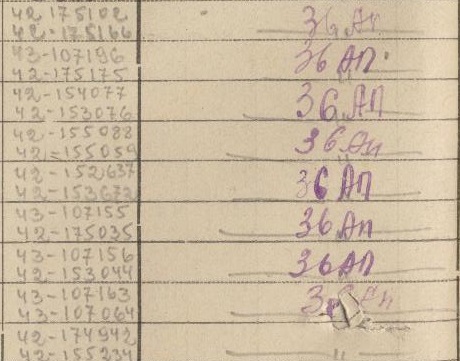 42-175102 36 Ап
42-175166
43-107196 36 АП
42-175175
42-154077 36 АП
42-153076
42-155088 36 Ап
42-155059
42-152637 36 АП
42-153672
43-107155 36 Ап
42-175035
43-107156 36 АП
42-153044
43-107163
43-107064
42-174942
42-155234 "